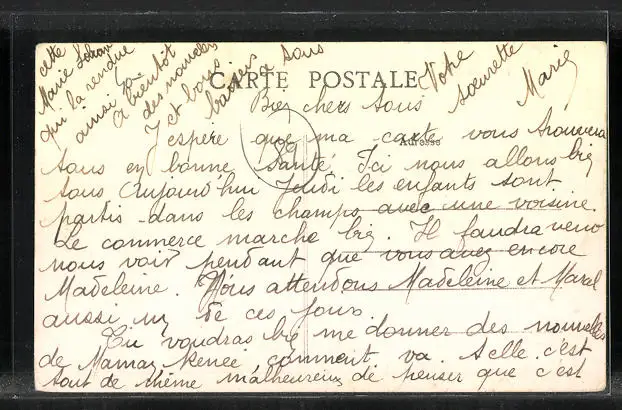 CARTE POSTALE
Adresse
89
Bien chers tous
J'espère que ma carte vous trouvera
tous en bonne santé Ici nous allons bien
tous Aujourd'hui Jeudi les enfants sont
partis dans les champs avec une voisine.
Le commerce marche bien. Il faudra venir
nous voir pendant que vous avez encore
Madeleine. Nous attendons Madeleine et Marcel
aussi un de ces jours.
Tu voudras bien me donner des nouvelles
de Maman Renée comment va-t-elle c'est
tout de même malheureux de penser que c'est
cette
Marie
qui l'a rendue
ainsi
A bientôt
des nouvelles
et bons
baisers
à tous
Votre
soeurette
Marie